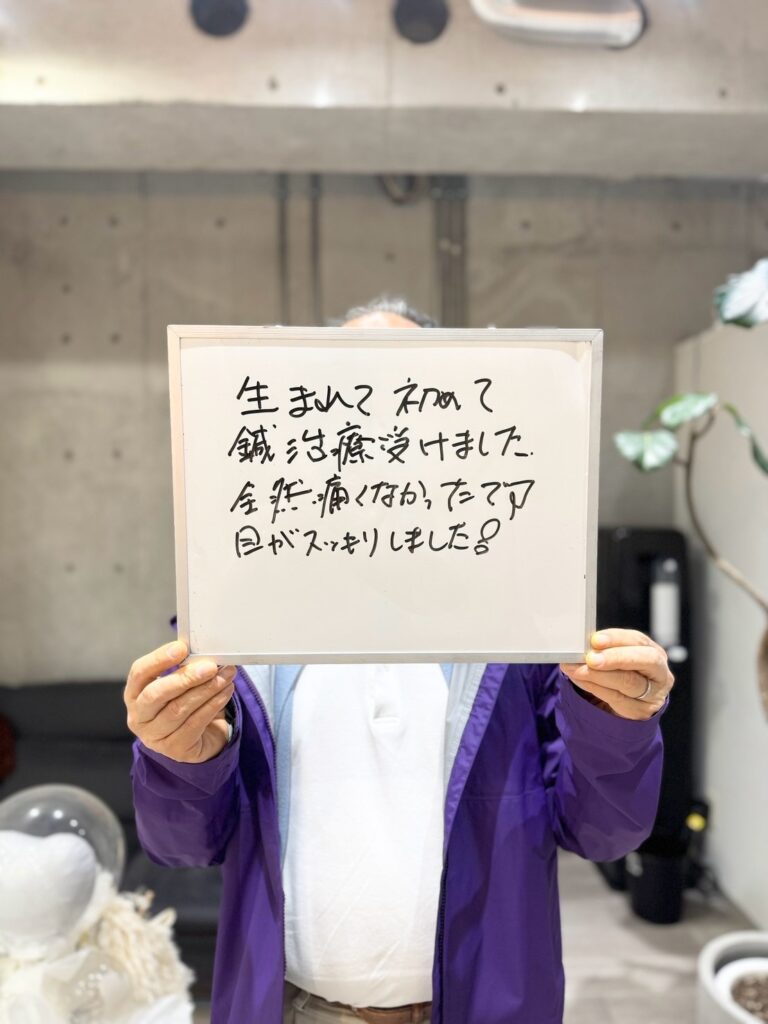 生まれて初めて
鍼治療受けました.
全然痛くなかったです
目がスッキリしました!